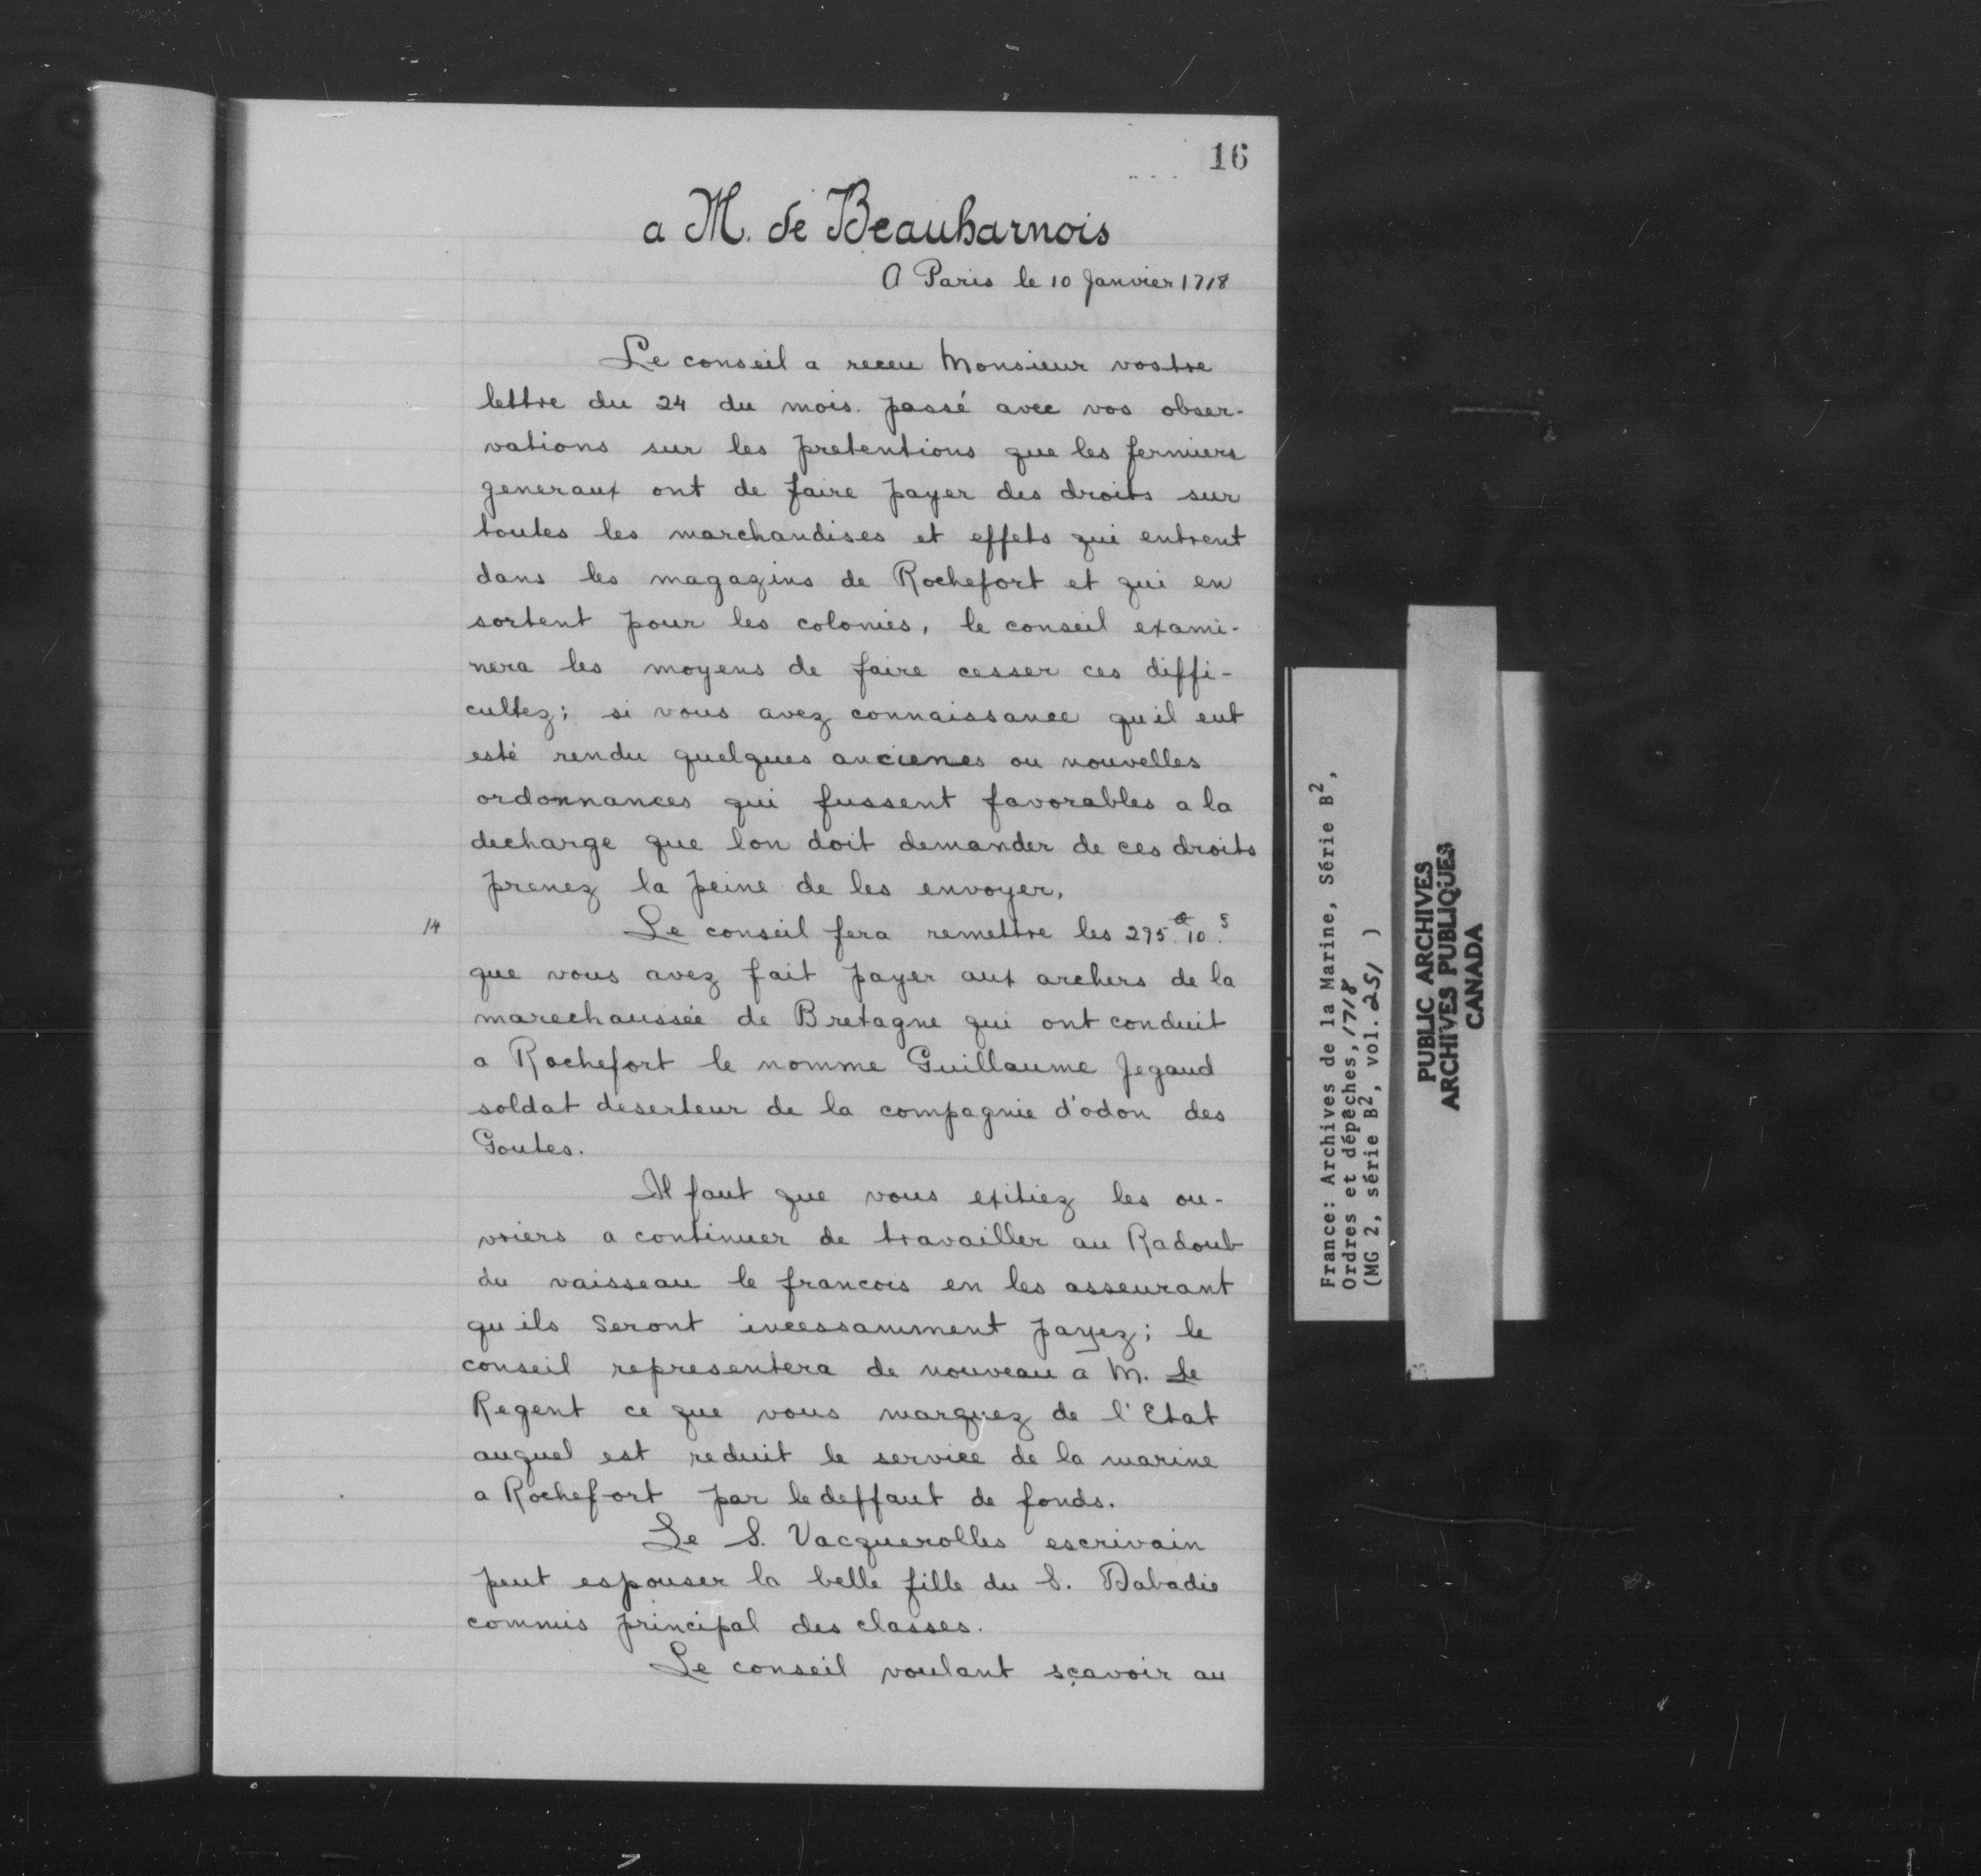 16
a M. de Beauharnois
A Paris le 10 Janvier 1718
Le conseil a receu Monsieur vostre
lettre du 24 du mois passé avec vos obser-
vations sur les pretentions que les fermiers
generaux ont de faire payer des droits sur
toutes les marchandises et effets qui entrent
dans les magazins de Rochefort et qui en
sortent pour les colonies, le conseil exami-
nera les moyens de faire cesser ces diffi-
cultez; si vous avez connaissance quil eut
esté rendu quelques ancienes ou nouvelles
ordonnances qui fussent favorables a la
decharge que lon doit demander de ces droits
prenez la peine de les envoyer,
14
Le conseil fera remettre les 295.# 10.s
que vous avez fait payer aux archers de la
marechaussée de Bretagne qui ont conduit
a Rochefort le nomme Guillaume Jegaud
soldat deserteur de la compagnie d'odon des
Goutes.
Il faut que vous exitiez les ou-
vriers a continuer de travailler au Radoub
du vaisseau le francois en les asseurant
qu ils seront incessamment payez; le
conseil representera de nouveau a M. Le
Regent ce que vous marquez de l'Etat
auquel est reduit le service de la marine
a Rochefort par le deffaut de fonds.
Le S. Vacquerolles escrivain
peut espouser la belle fille du S. Dabadie
commis principal des classes.
Le conseil voulant sçavoir au
France: Archives de la Marine, Série B2,
Ordres et dépêches, 1718
(MG 2, série B2, vol. 251 )
PUBLIC ARCHIVES
ARCHIVES PUBLIQUES
CANADA